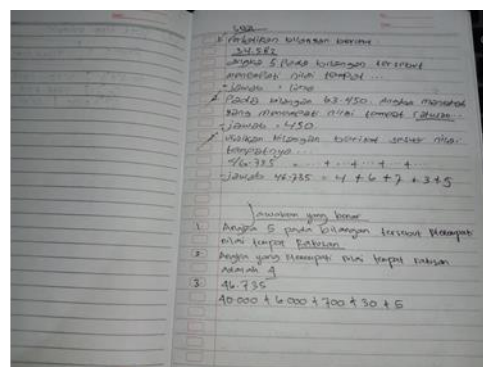 1. Perhatikan bilangan berikut:
34.582
angka 5 pada bilangan tersebut
menempati nilai tempat ...
- jawab : lima
2. Pada bilangan 63.450. Angka
yang menempati nilai tempat ratusan...
- jawab = 450
bilangan berikut sesuai nilai
tempatnya ...
46.735 = ... + ... + ... + ...
- jawab 46.735 = 4 + 6 + 7 + 3 + 5
Jawaban yang benar
1. Angka 5 pada bilangan tersebut Menempati
nilai tempat Ratusan
2. Angka yang Menempati nilai tempat ratusan
Adalah 4
3. 46.735
40.000 + 6.000 + 700 + 30 + 5